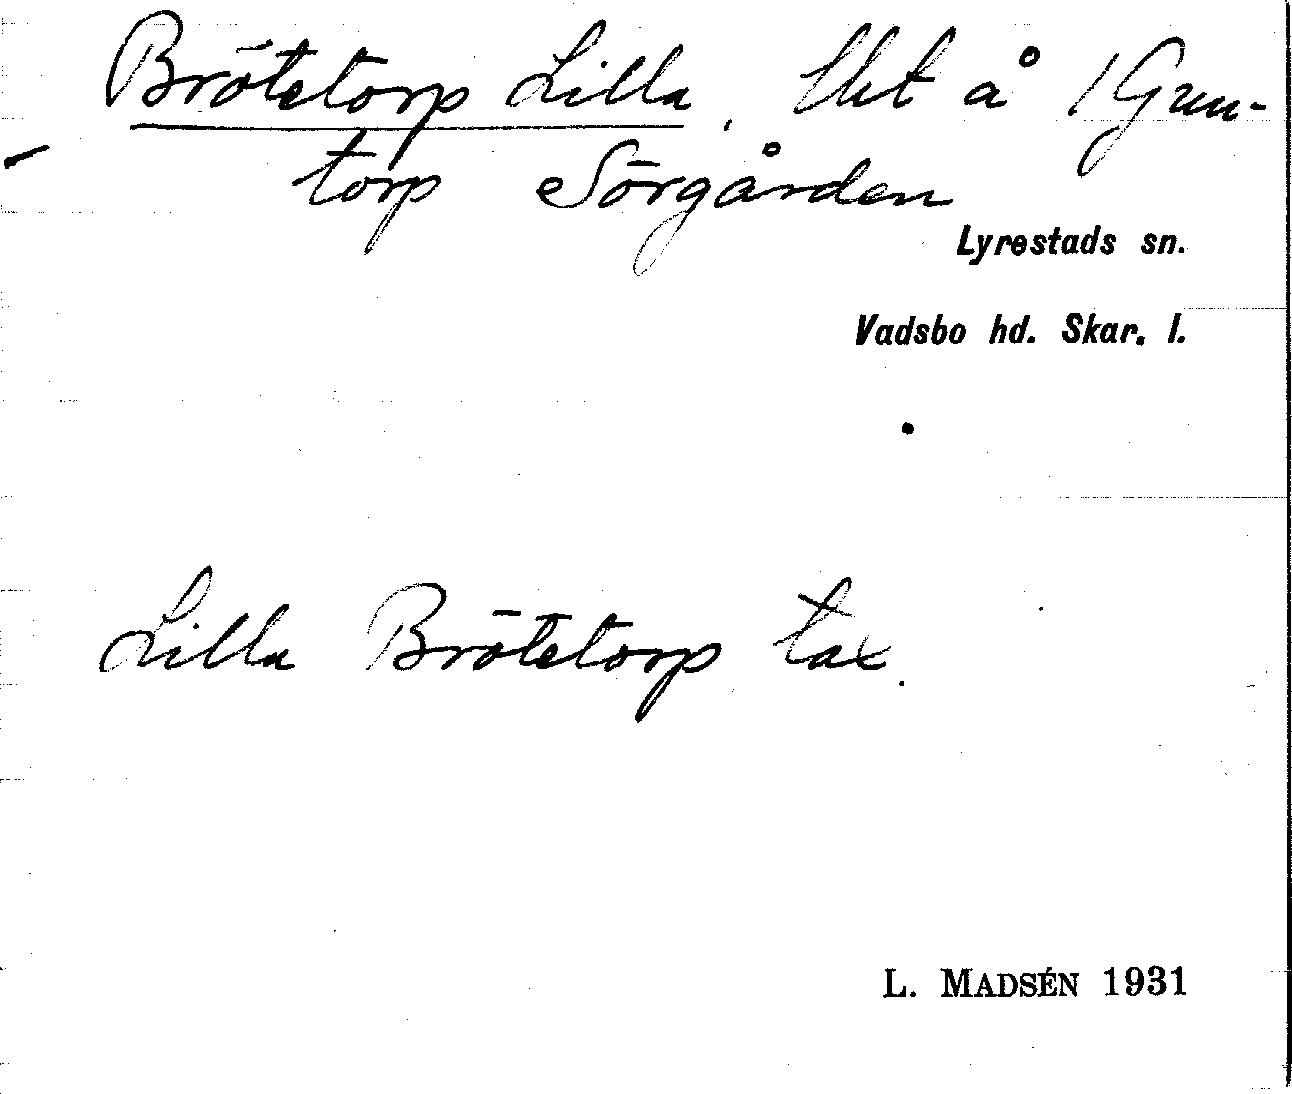 Brötetorp Lilla, lht å 1 Gun-
torp Sörgården
Lyrestads sn.
Vadsbo hd. Skar. l.
Lilla Brötetorp tax.
L. MADSÉN 1931